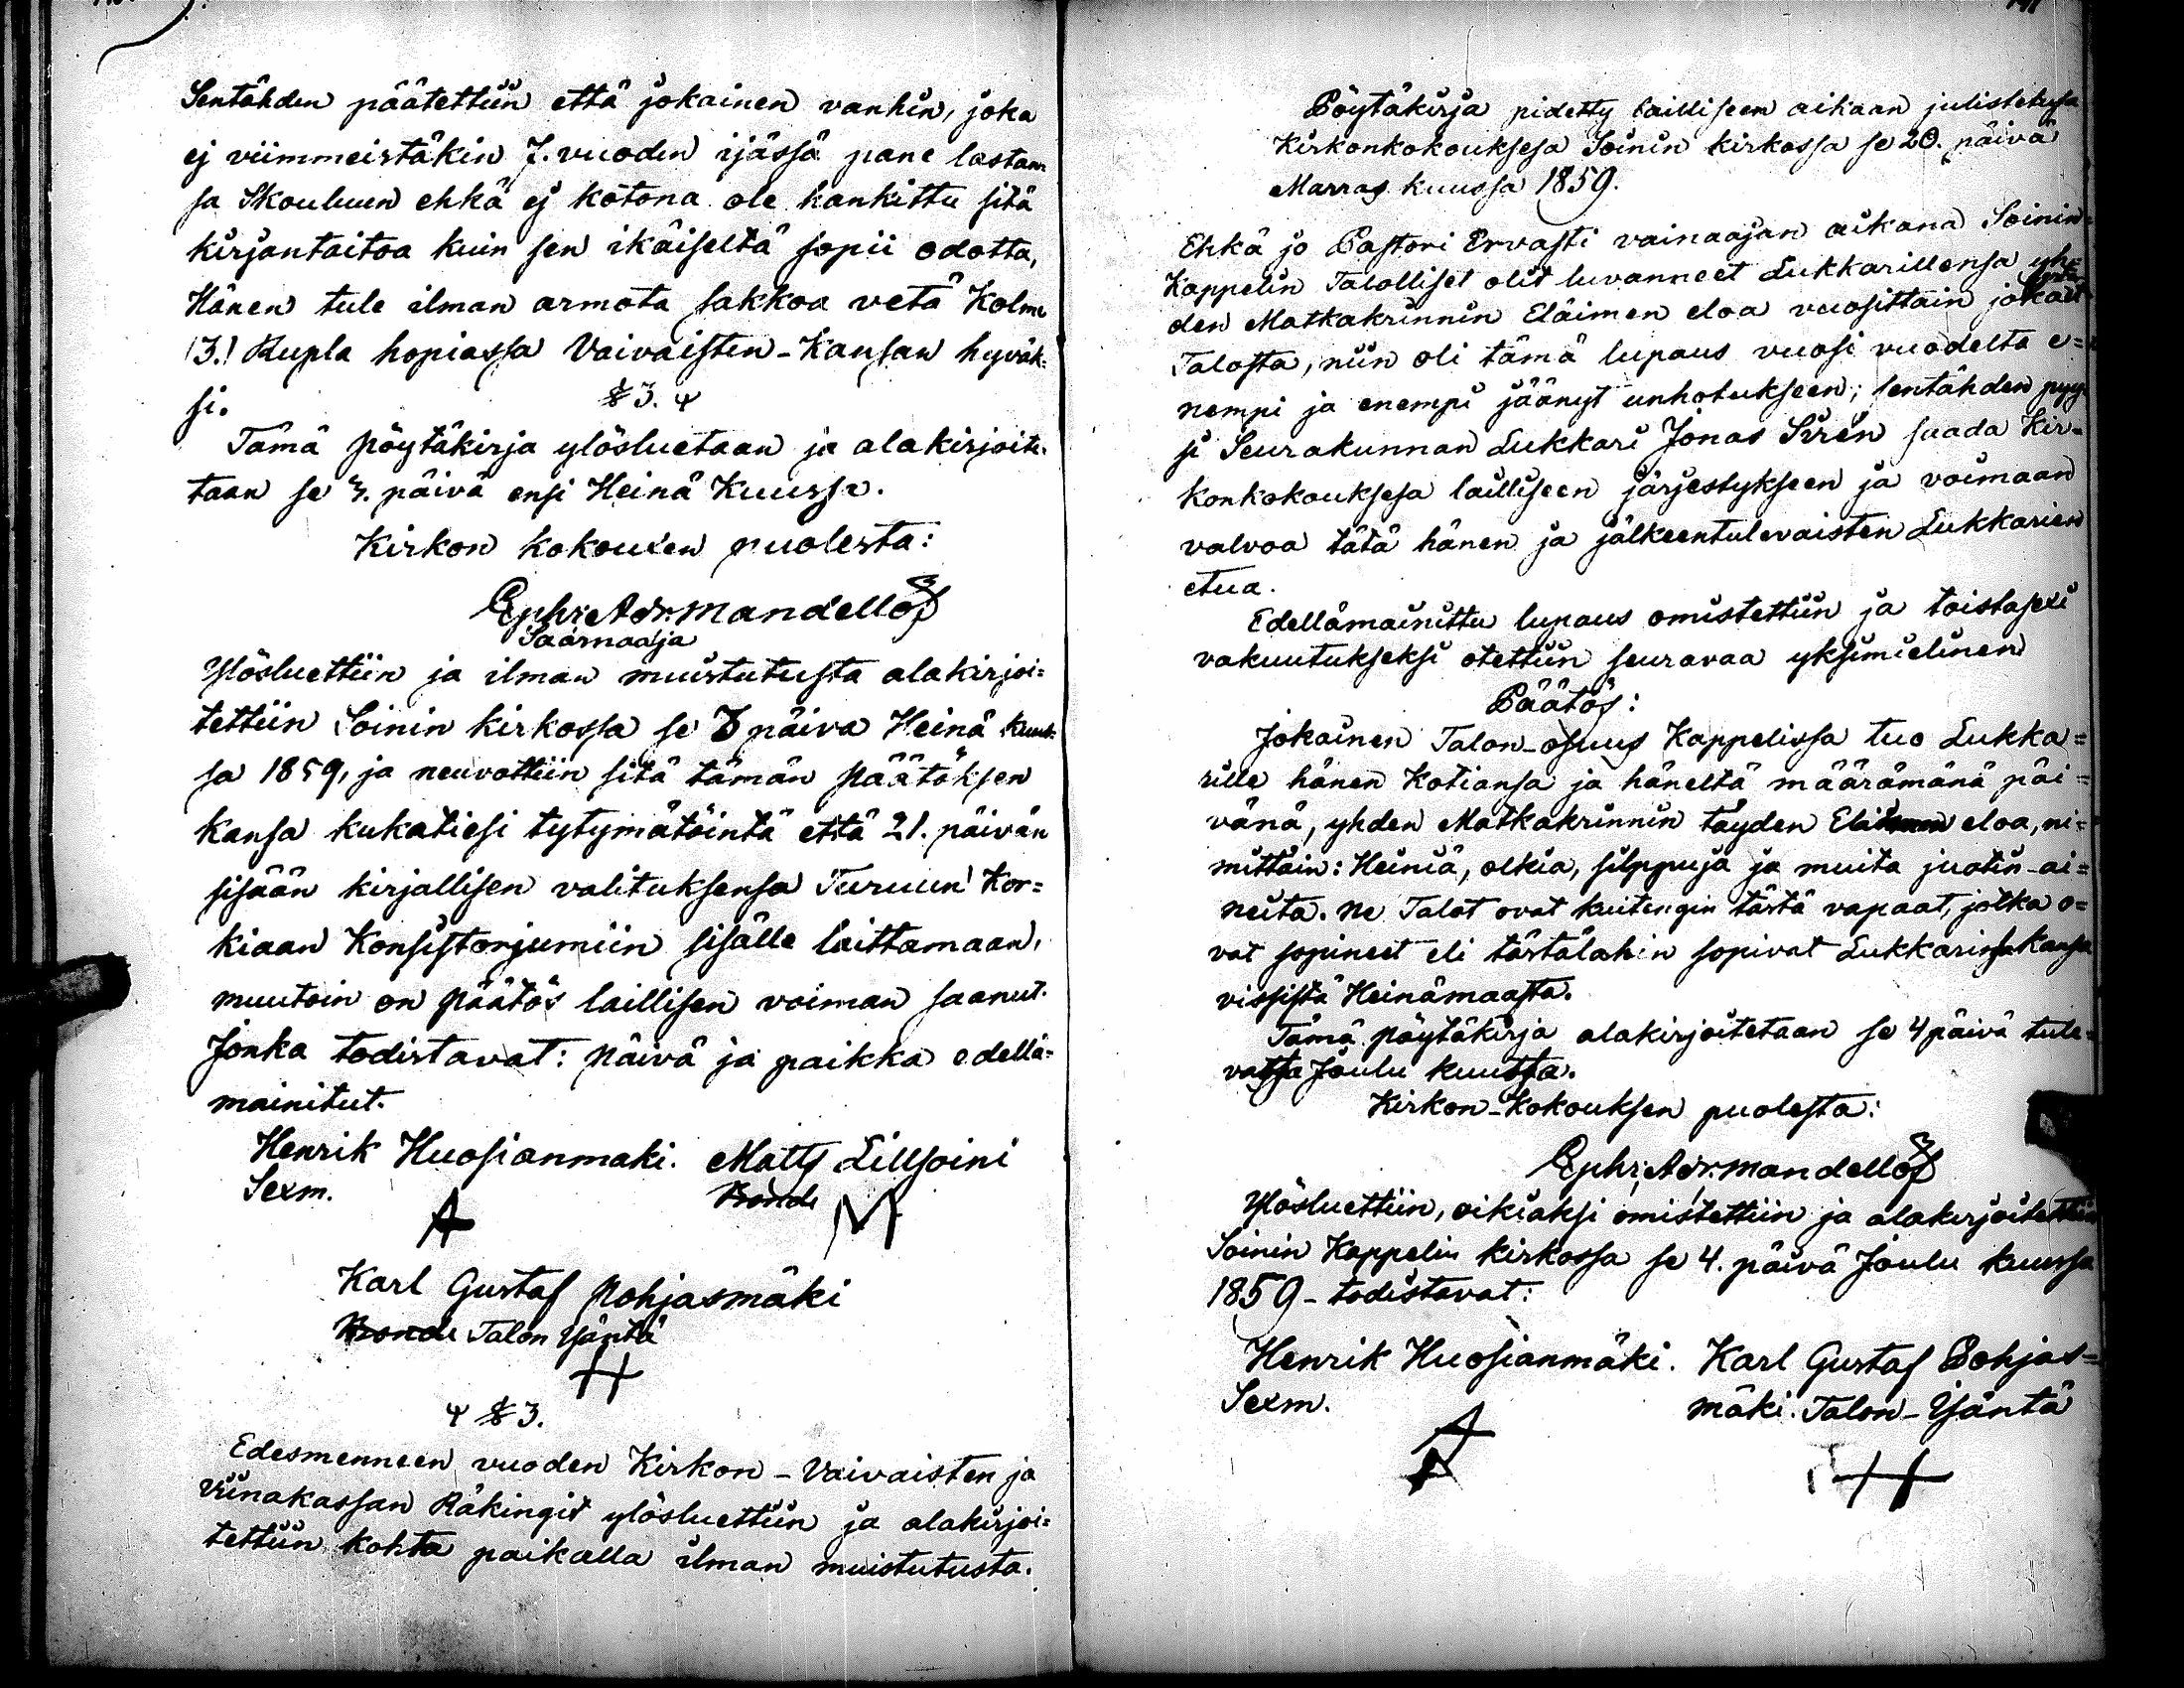 Sentähden päätettiin että jokainen vanhin, joka
ej viimmeistäkin 7. vuoden ijässä pane lastan-
sa Skouluun ehkä ej kotona ole hankittu sitä
kirjantaitoa kuin sen ikäiseltä sopii odotta,
Hänen tule ilman armota sakkoa vetä Kolme
(3.) Rupla hopiassa Vaivaisten-Kansan hyväk-
si.
§ 3. 4
Tämä pöytäkirja ylösluetaan ja alakirjoite-
taan se 3. päivä ensi Heinä Kuussa.
Kirkon kokouxen puolesta:
Ephr: Adr. Mandellöf
Saarnaaja
Ylösluettiin ja ilman muistutusta alakirjoi=
tettiin Soinin kirkossa se 3 päiva Heinä kuus-
sa 1859, ja neuvottiin sitä tämän päätöksen
kansa kukatiesi tytymätöintä että 21. päivän
sisään kirjallisen valituksensa Turuun Kor=
kiaan Konsistorjumiin sisälle laittamaan,
muutoin on päätös laillisen voiman saanut.
Jonka todistavat: päivä ja paikka edellä=
mainitut.
Henrik Huosianmaki. Matts Lillsoini
Sexm. Bonde
A M
Karl Gustaf Pohjasmäki
Bonde Talon Ysäntä
H
4 § 3.
Edesmenneen vuoden Kirkon-Vaivaisten ja
Viinakassan Räkingit ylösluettiin ja alakirjoi=
tettiin kohta paikalla ilman muistutusta.
Pöytäkirja pidetty lailliseen aikaan julistetusa
Kirkonkokouksesa Soinin kirkossa se 20. päivä
Marras kuussa 1859.
Ehkä jo Pastori Ervasti vainaajan aikana Soinin
Kappelin Talolliset olit luvanneet Lukkarillensa yh=
den Matkakrinnin Eläimen eloa vuosittain jokai
Talosta, niin oli tämä lupaus vuosi vuodelta e=
nempi ja enempi jäänyt unhotukseen; sentähden pyy
si Seurakunnan Lukkari Jonas Sirén saada Kir=
konkokouksesa lailliseen järjestykseen ja voimaan
valvoa tätä hänen ja jälkeentulevaisten Lukkarien
etua.
Edellämainittu lupaus omistettiin ja toistasexi
vakuutukseksi otettiin seuravaa yksimielinen
Päätös:
Jokainen Talon-osuus Kappelissa tuo Lukka=
rille hänen Kotiansa ja häneltä määrämänä päi=
vänä, yhden Matkakrinnin täyden Eläimen eloa, ni=
mittäin: Heiniä, olkia, silppuja ja muita juotin-ai=
neita. Ne Talot ovat kuitengin tästä vapaat, jotka o=
vat sopineet eli tästälähin sopivat Lukkarinsa kansa
vissistä Heinämaasta.
Tämä pöytäkirja alakirjoitetaan se 4 päivä tule=
vassa Joulu kuussa.
Kirkon-Kokouksen puolesta:
Ephr: Adr. Mandellöf
Ylösluettiin, oikiaksi omistettiin ja alakirjoitettiin
Soinin Kappelin kirkossa se 4. päivä Joulu kuussa
1859 - todistavat:
Henrik Huosianmäki. Karl Gustaf Pohjas=
Sexm. mäki. Talon-Ysäntä
A H